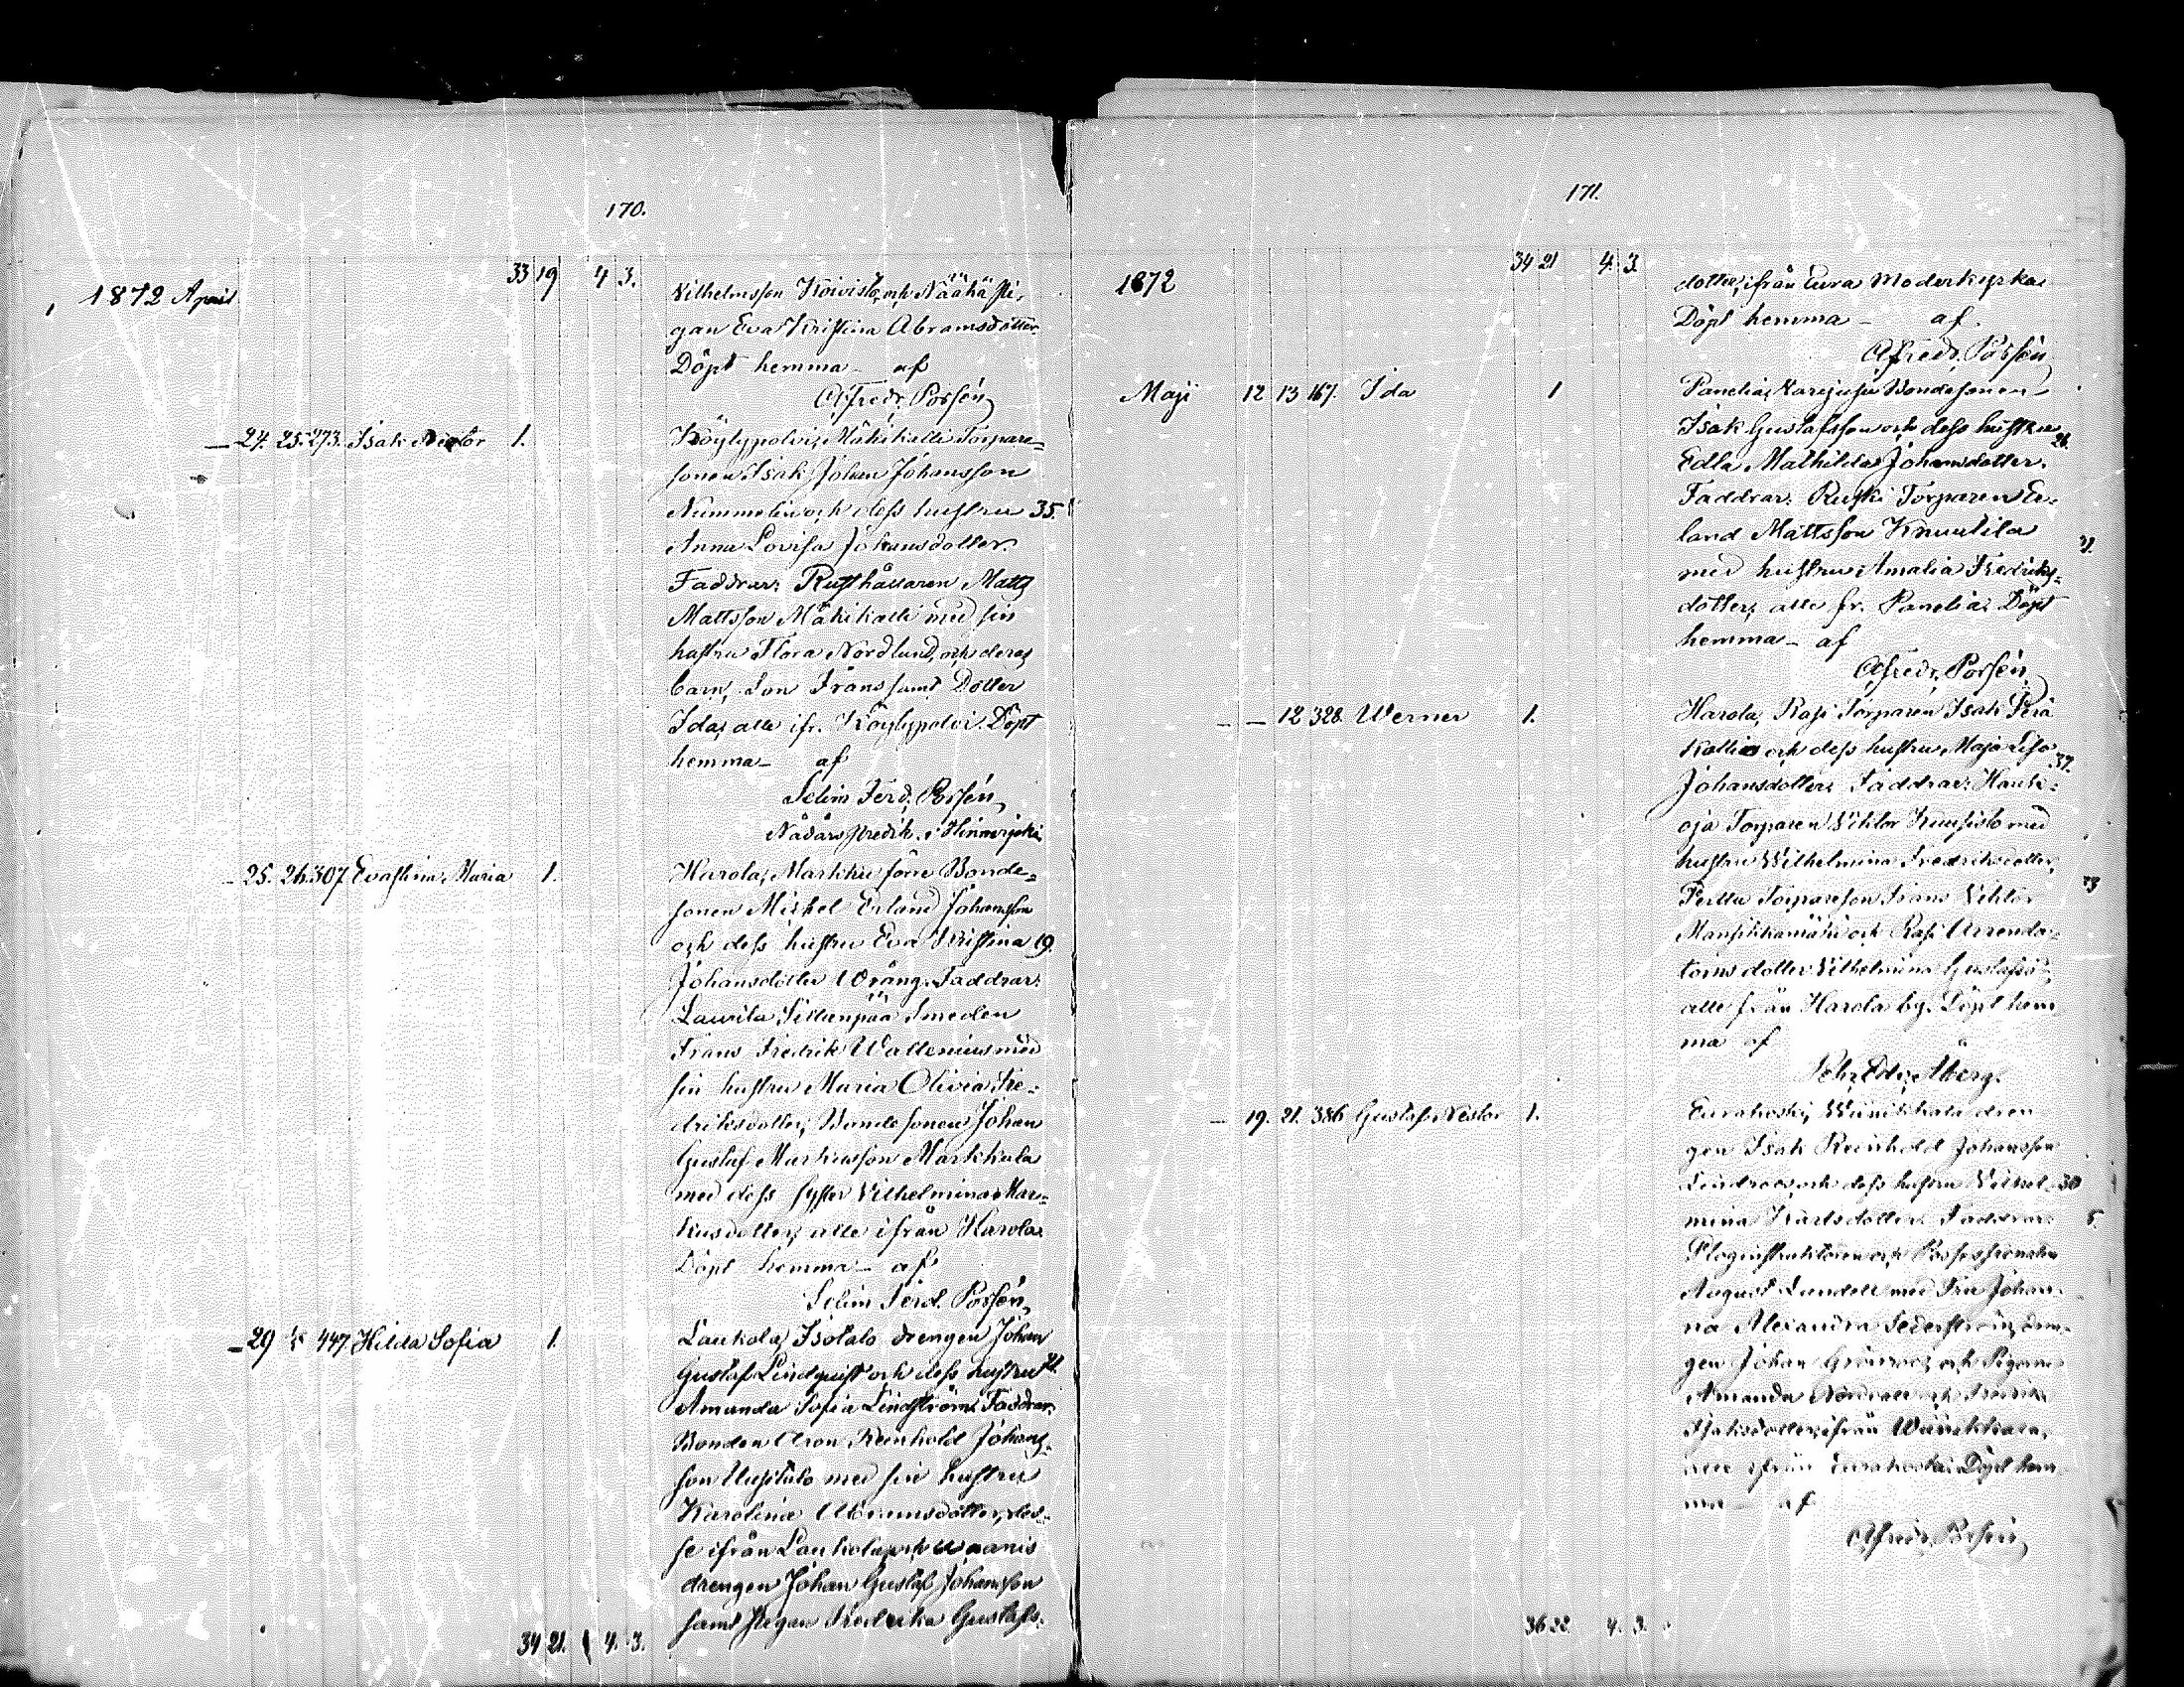 170.
33 19 4 3.
1872 April
Vilhelmsson Koivisto, och Näähä Pi,
gan Eva Kristina Abramsdotter.
Döpt hemma – af
Alfredr. Porsén
– 24. 25. 273. Isak Nestor 1.
Köylypolvi, Mäkikalli Torpare=
sonen Isak Johan Johansson
Nummelin och dess hustru 35.
Anna Lovisa Johansdotter.
Faddrar: Rusthållaren Matts
Mattsson Mäkikalli med sin
hustru Flora Nordlund, och deras
barn, Son Frans samt Dotter
Ida, alla ifr. Köylypolvi. Döpt
hemma – af
Selim Ferd. Porsén
Nådårspredik. i Hinnerjoki
– 25. 26. 307 Evastina Maria 1.
Harola, Markku före Bonde=
sonen Mickel Erland Johansson
och dess hustru Eva Kristina 19.
Johansdotter Wrång. Faddrar:
Laurila Sillanpää Smeden
Frans Fredrik Wallenius med
sin hustru Maria Olivia Fre=
driksdotter, Bondesonen Johan
Gustaf Markusson Markkula
med dess syster Vilhelmina Mar=
kusdotter, alla ifrån Harola.
Döpt hemma – af
Selim Ferd. Porsén,
– 29 447. Hilda Sofia 1.
Laukola, Isotalo drengen Johan
Gustaf Lindquist och dess hustru
Amanda Sofia Lindström. Faddrar:
Bonden Aron Reinhold Johans=
son Uusitalo med sin hustru
Karolina Abramsdotter, des=
se ifrån Laukola, och
drengen Johan Gustaf Johansson
samt Pigan Fredrika Gustafs=
34 21. 4. 3.
171.
34 21 4. 3.
1872
dotter, ifrån Eura Moderkyrka.
Döpt hemma – af
Alfredr. Porsén
Maji 12 13 167. Ida 1
Panelia, Bondesonen
Isak Gustafsson och dess hustru 26.
Edla Mathilda Johansdotter.
Faddrar: Ruski Torparen Er=
land Mattsson Knuutila
med hustru Amalia Fredriks=
dotter, alla fr. Panelia. Döpt
hemma – af
Alfredr. Porsén
– – 12 328. Werner 1.
Harola, Rasi Torparen Isak Perä
Kallio och dess hustru Maja Lisa 37.
Johansdotter. Faddrar: Hauki=
oja Torparen Viktor Kuusisto med
hustru Wilhelmina Fredriksdotter,
Perttu Torpareson Frans Viktor
Mansikkamäki och Rasi Arrenda=
torns dotter Vilhelmina Gustafsd:
alla från Harola by. Döpt hem
ma af
Pehr Edv. Åberg.
– 19. 21. 386 Gustaf Nestor 1.
Eurakoski, Wänikkala dren
gen Isak Reinhold Johansson
Lindroos, och dess hustru Vilhel= 30
mina Karlsdotter. Faddrar: 5.
Ploginstruktören och Possessionaten
August Lundell med Fru Johan=
na Alexandra Sederström, dren=
gen Johan Grönroos, och Pigorna
Amanda och Fredrika
Isaksdotter, ifrån
alla ifrån Eurakoski. Döpt hem
ma – af
Alfredr. Porsén
36 22 4. 3.